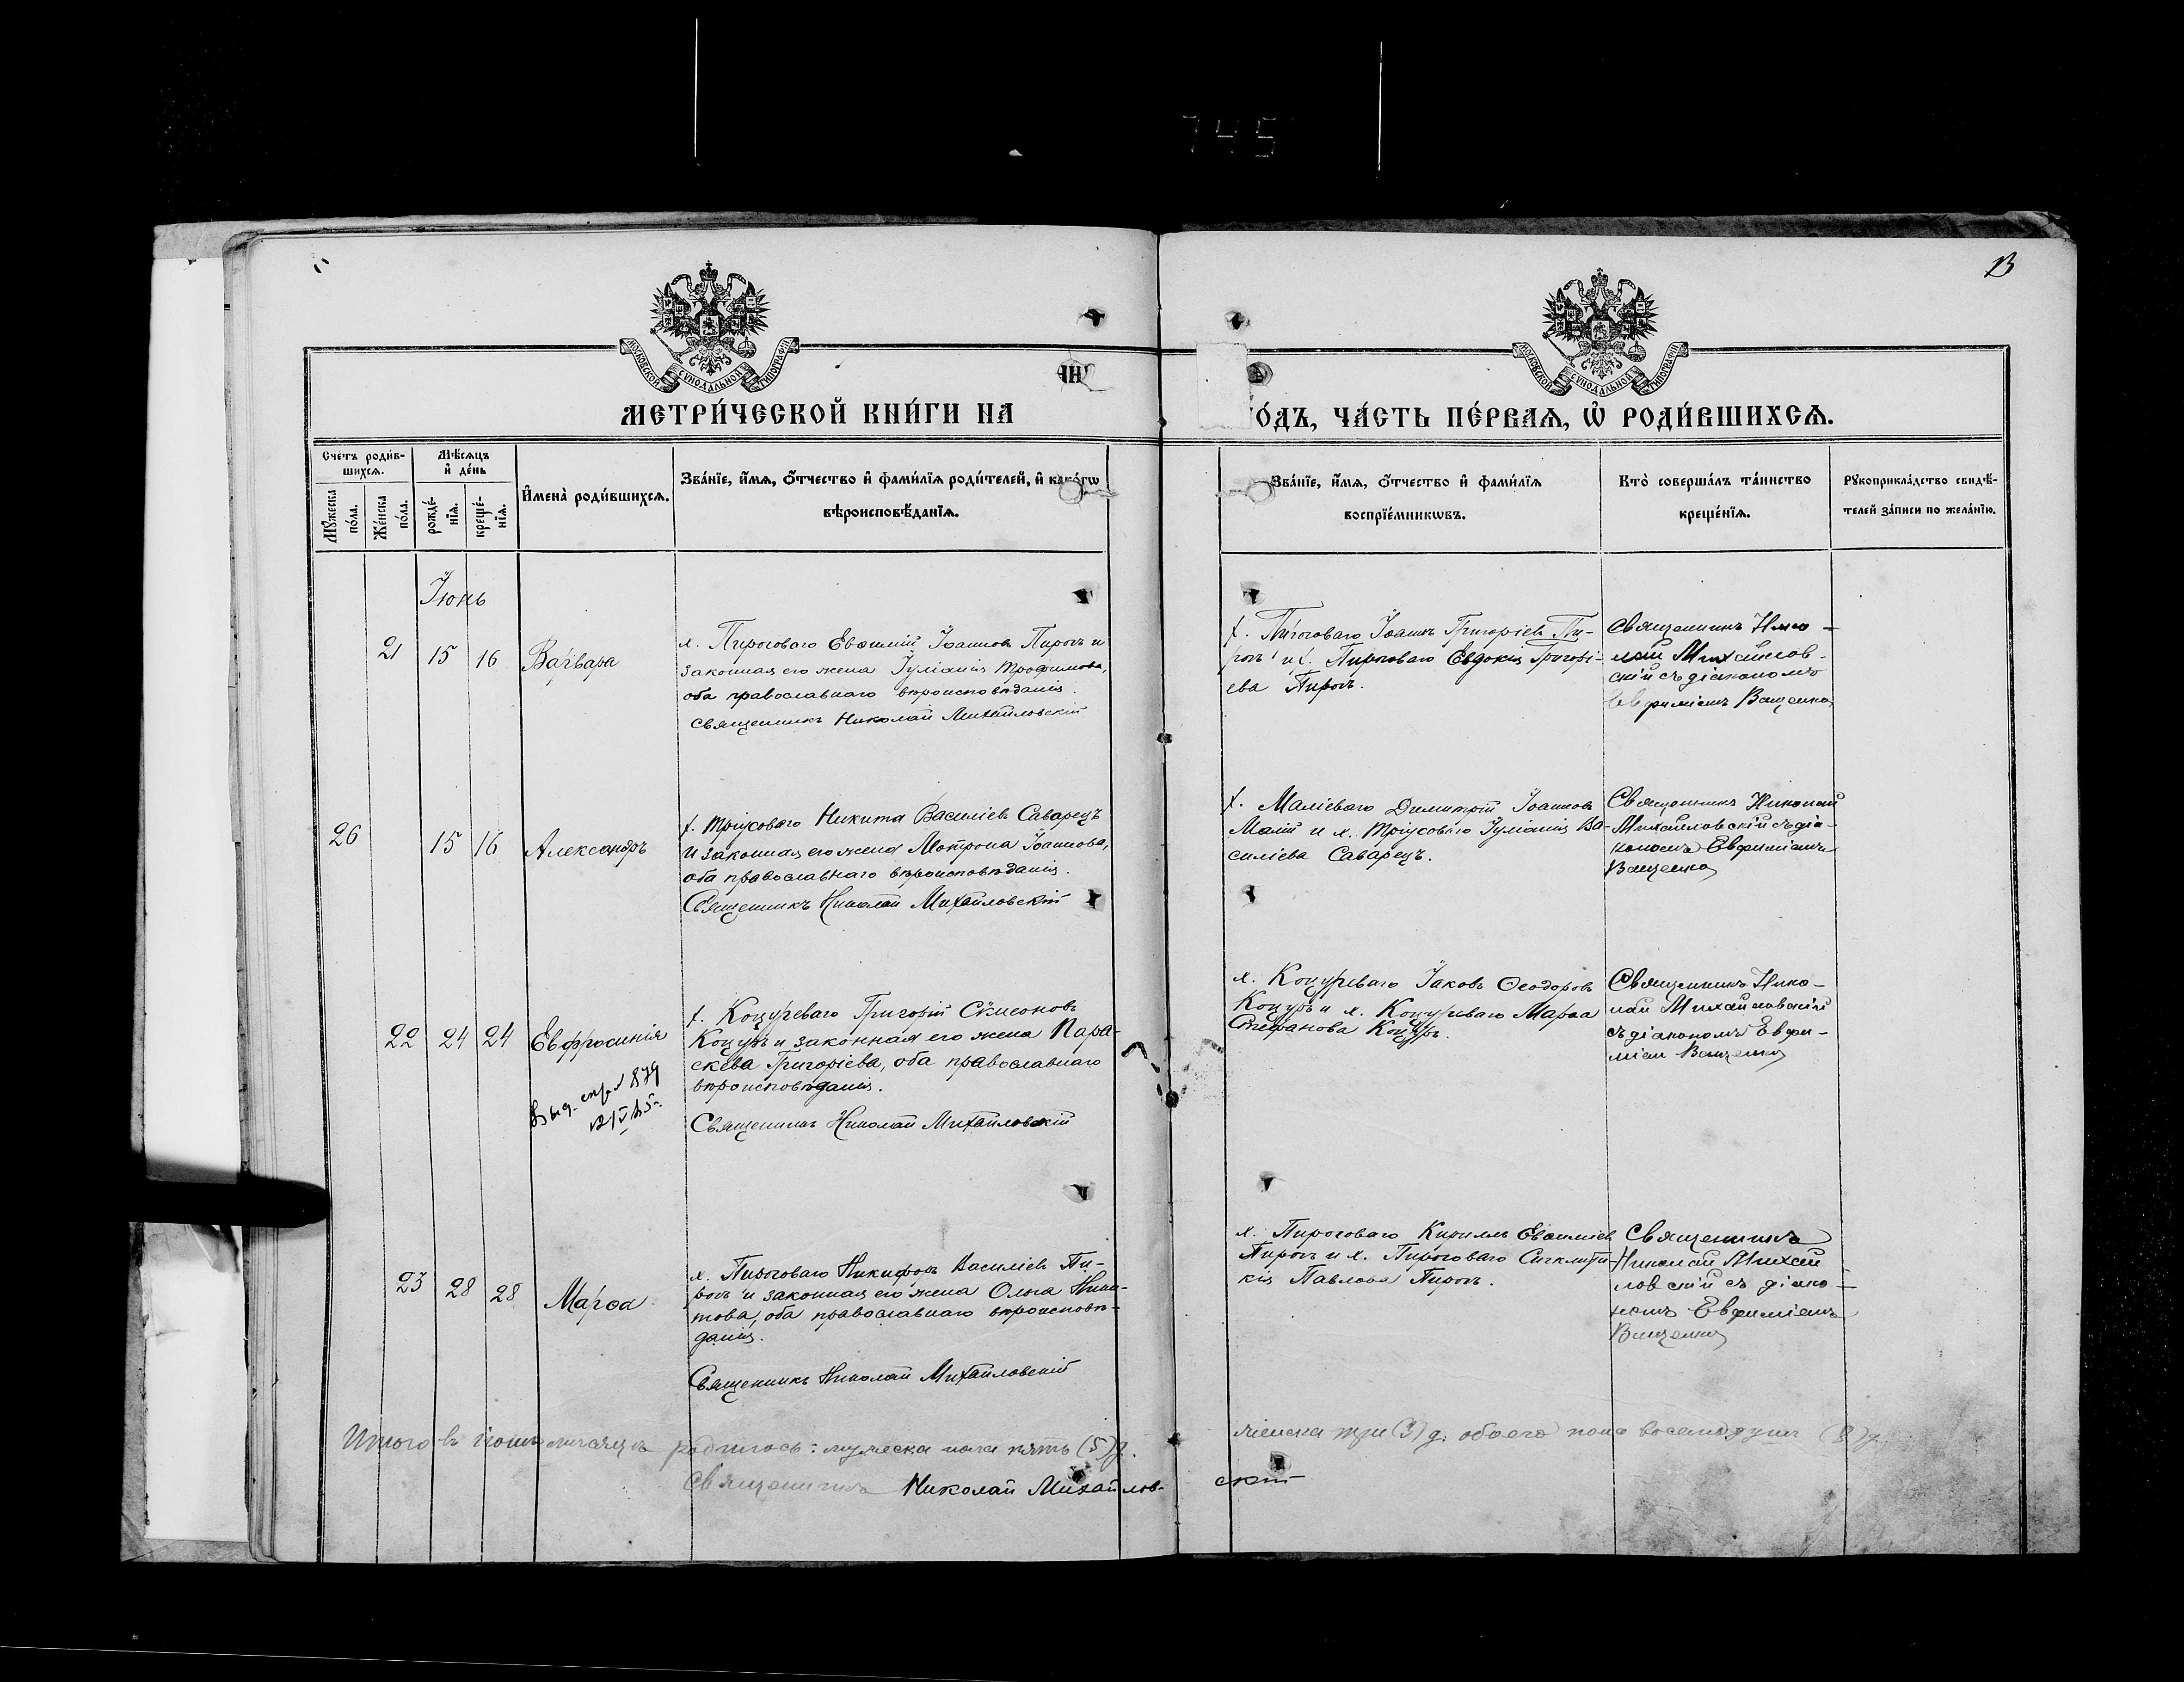 745
13
МОСКОВСКОЙ СУНОДАЛЬНОЙ ТИПОГРАФІИ
МОСКОВСКОЙ СУНОДАЛЬНОЙ ТИПОГРАФІИ
МЕТРИ́ЧЕСКОЙ КНИ́ГИ НА
О́ДЪ, ЧА́СТЬ ПЕ́РВАЯ, Ѡ҆ РОДИ́ВШИХСЯ.
Сче́тъ роди́в-
шихся.
Мѣ́сяцъ
и҆ де́нь
Му́жеска
по́ла.
Же́нска
по́ла.
рожде́-
нїя.
креще́-
нїя.
И҆мена̀ роди́вшихся.
Зва́нїе, и҆́мя, ѻ҆́тчество и҆ фами́лїя роди́телей, и҆ како́гѡ
вѣроисповѣ́данїя.
Зва́нїе, и҆́мя, ѻ҆́тчество и҆ фами́лїя
воспрїе́мникѡвъ.
Кто̀ соверша́лъ та́инство
креще́нїя.
Рукоприкла́дство свидѣ́-
телей за́писи по жела́нїю.
Іюнь
21 15 16 Варвара
х. Пироговаго Евѳимій Іоанновъ Пирогъ и
законная его жена Іуліанія Трофимова,
оба православнаго вѣроисповѣданія.
Священникъ Николай Михайловскій
х. Пироговаго Іоаннъ Григоріевъ Пи-
рогъ и х. Пироговаго Евдокія Григорі-
ева Пирогъ.
Священникъ Нико-
лай Михайлов-
скій съ діакономъ
Евфиміемъ Ващенко
26 15 16 Александръ
х. Тріусоваго Никита Василіевъ Саварецъ
и законная его жена Мотрона Іоаннова,
оба православнаго вѣроисповѣданія.
Священникъ Николай Михайловскій
х. Маліеваго Димитрій Іоанновъ
Малій и х. Тріусоваго Іуліанія Ва-
силіева Саварецъ.
Священникъ Николай
Михайловскій съ діа-
кономъ Евфиміемъ
Ващенко
22 24 24 Евфросинія
Выд. спр. № 879
х. Коцуреваго Григорій Сѵмеоновъ
Коцуръ и законная его жена Пара-
скева Григоріева, оба православнаго
вѣроисповѣданія.
Священникъ Николай Михайловскій
х. Коцуреваго Іаковъ Ѳеодоровъ
Коцуръ и х. Коцуреваго Марѳа
Стефанова Коцуръ.
Священникъ Нико-
лай Михайловскій
съ діакономъ Евфи-
міем Ващенко
23 28 28 Марѳа
х. Пироговаго Никифоръ Василіевъ Пи-
рогъ и законная его жена Ольга Ники-
това, оба православнаго вѣроисповѣ-
данія.
Священникъ Николай Михайловскій
х. Пироговаго Кириллъ Евѳиміевъ
Пирогъ и х. Пироговаго Сигклити-
кія Павлова Пирогъ.
Священникъ
Николай Михай
ловскій съ діако-
номъ Евфиміемъ
Ващенко
Итого въ іюнѣ мѣсяцѣ родилось: мужеска пола пять (5) д.
женска три (3) д. обоего пола восемь душъ (8) д.
Священникъ Николай Михайлов-
скій